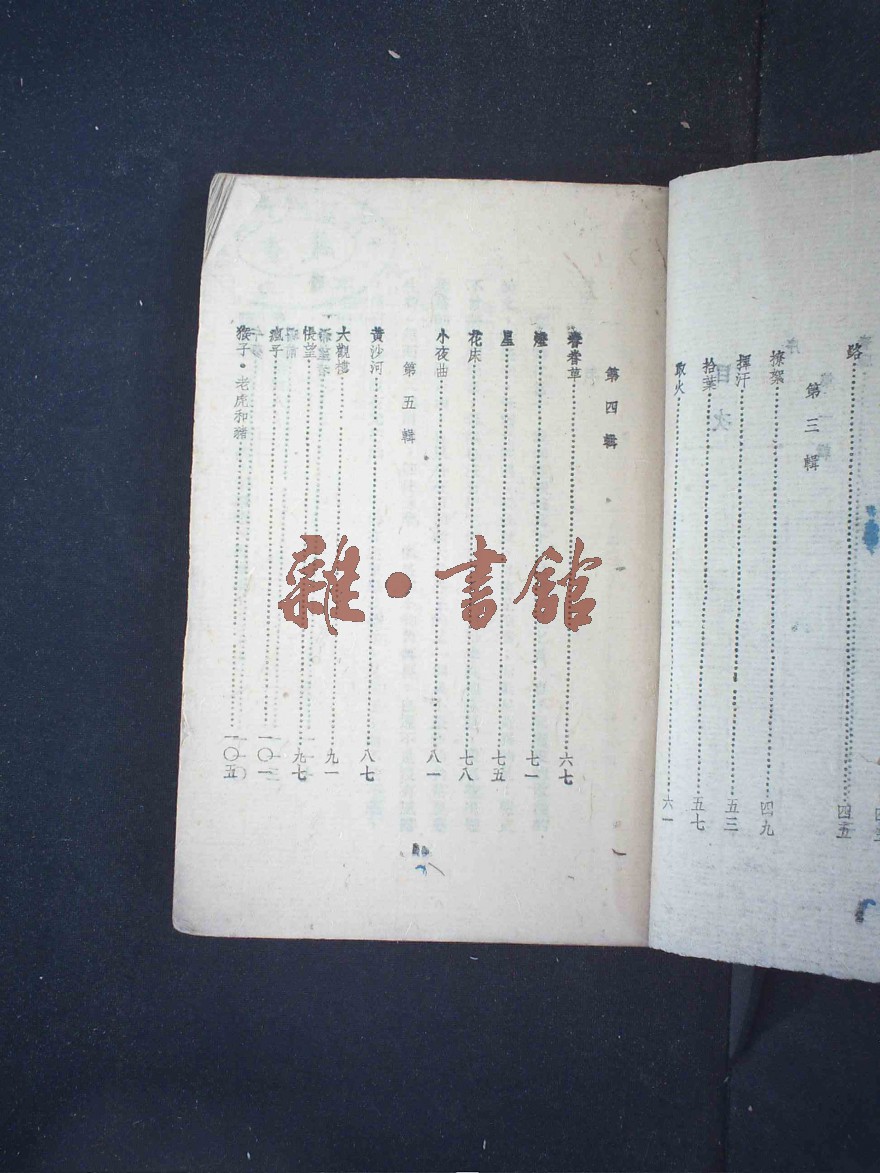 路 四五
第三輯
撩架 四九
揮汗 五三
拾葉 五七
取火 六一
第四輯
春當草 六七
燈 七一
星 七五
花床 七八
小夜曲 八一
第五輯
黄沙河 八七
大觀樓 九一
悵望 九七
瘋子 一〇一
猴子•老虎和豬 一〇五
雜•書館